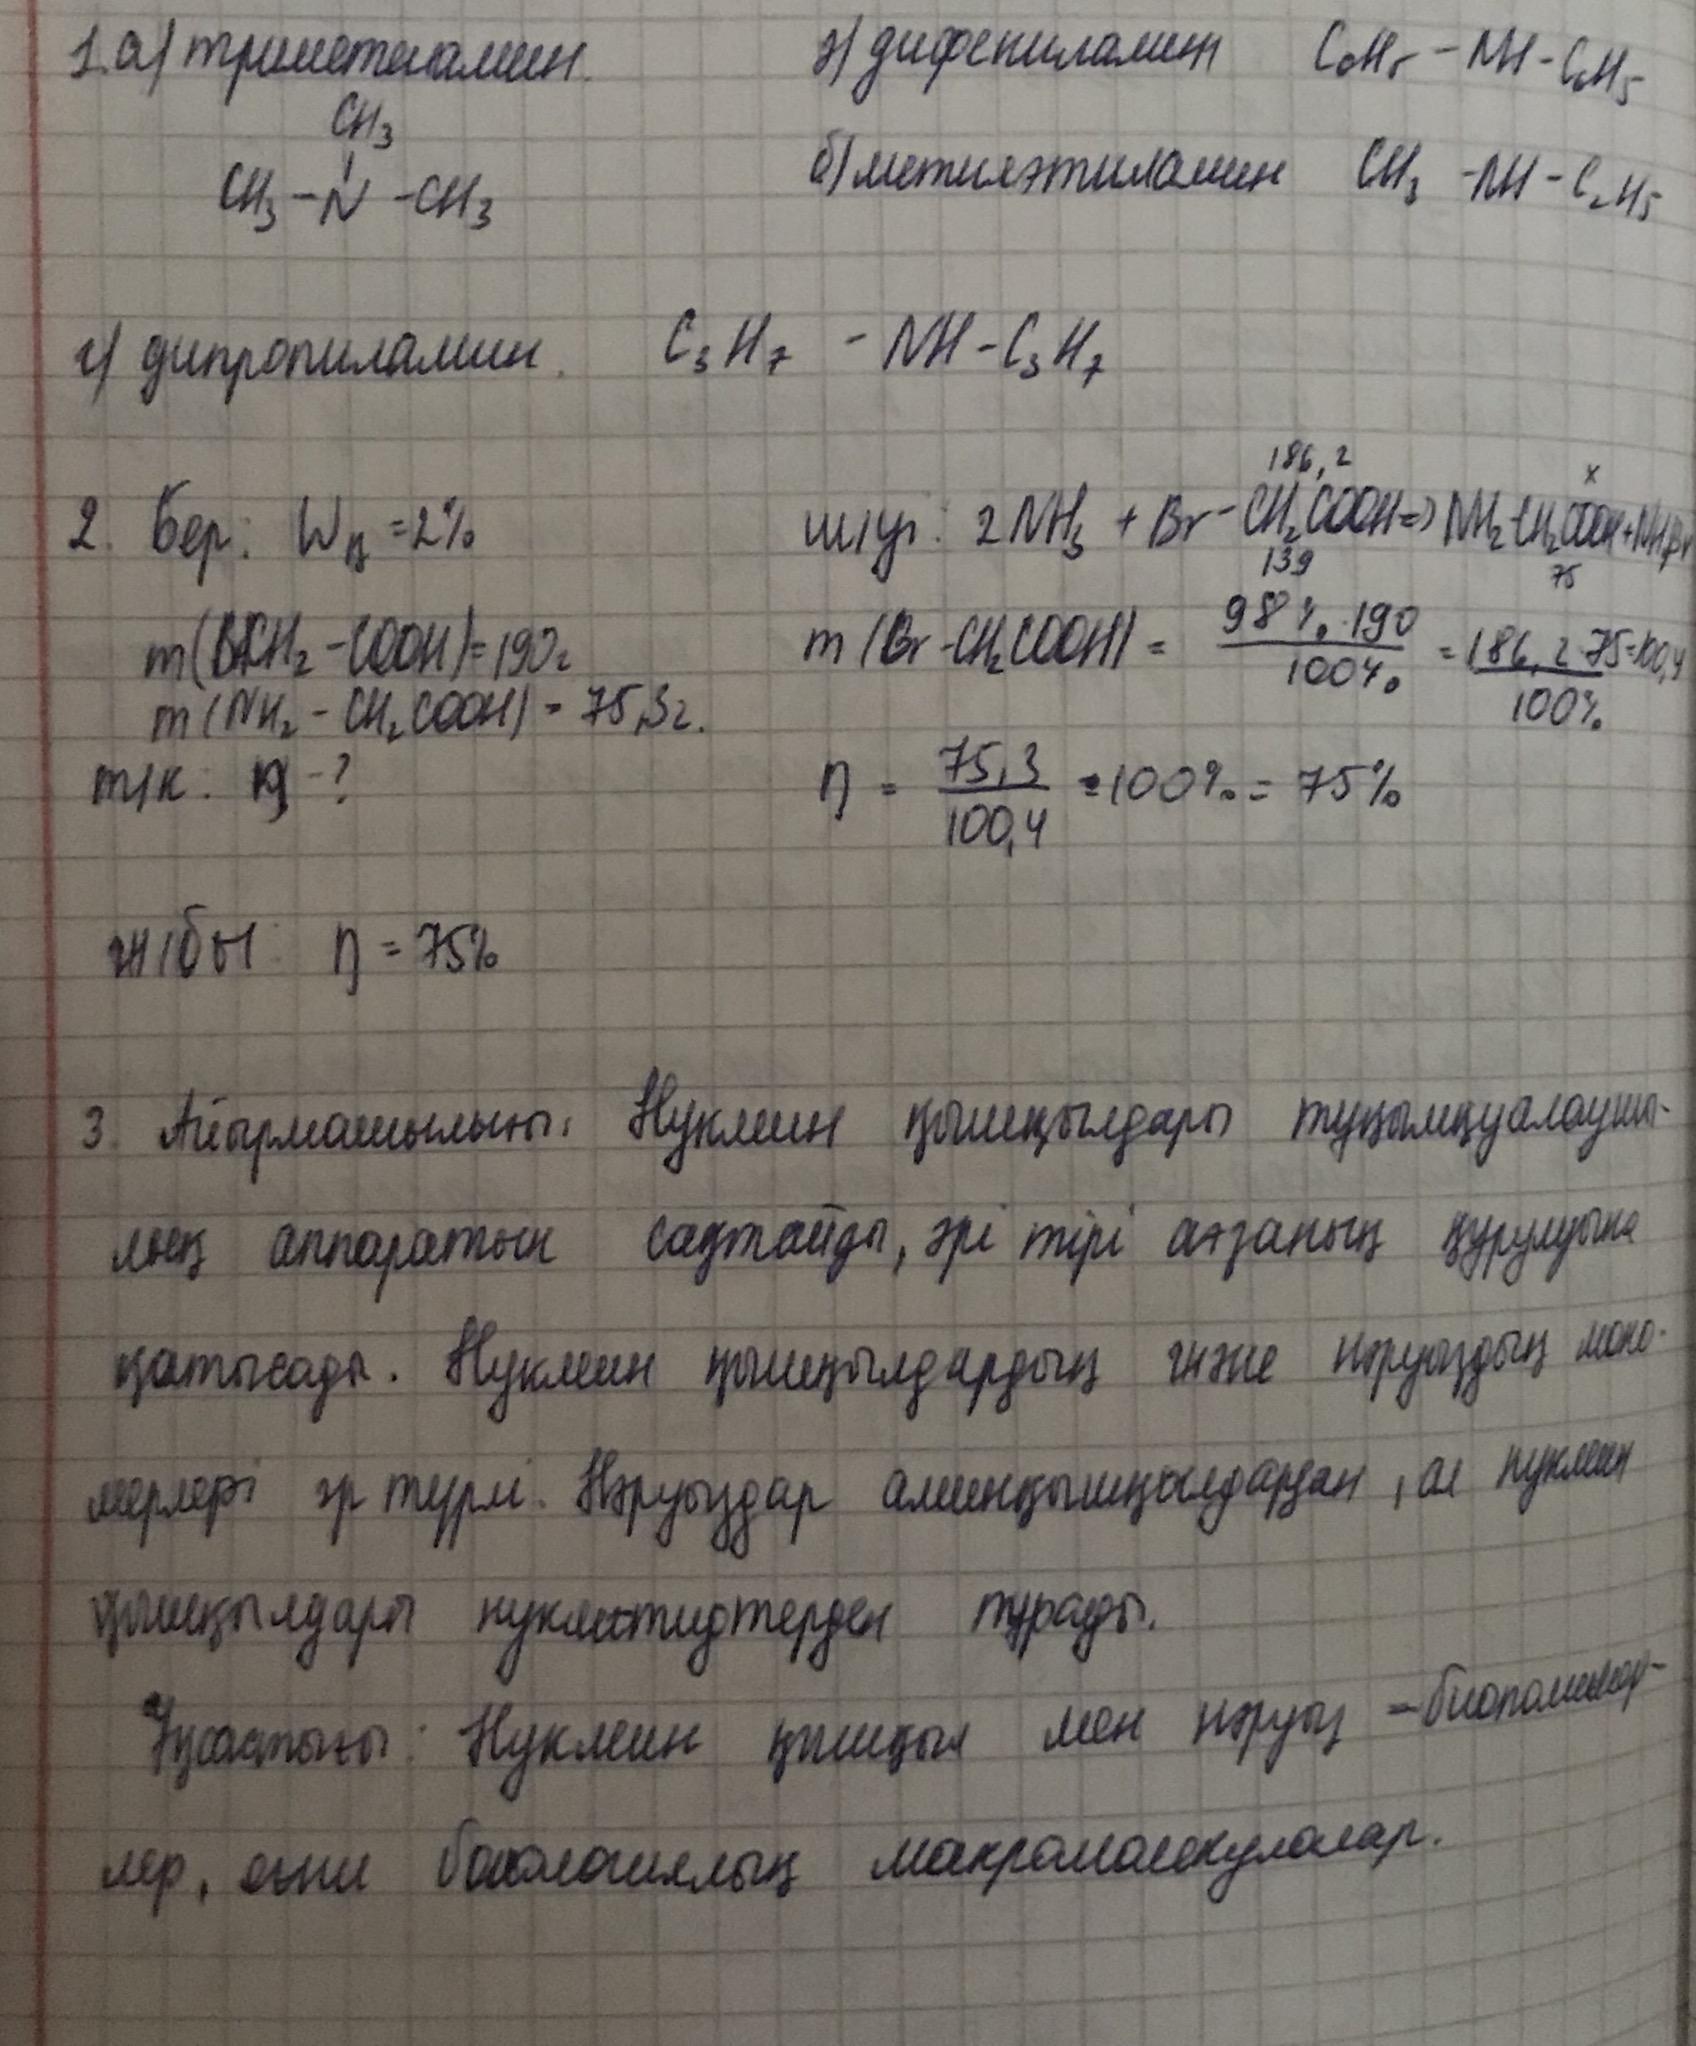 1.а) триметиламин.
CH3
CH3 – N – CH3
ә) дифениламин C6H5 – NH – C6H5
б) метилэтиламин CH3 – NH – C2H5
г) дипропиламин. C3H7 – NH – C3H7
2. Бер: Wп = 2%
m(BrCH2 – COOH) = 190г
m(NH2 – CH2COOH) = 75,3г.
т/к: η – ?
186,2 x
ш/уі: 2NH3 + Br – CH2COOH => NH2CH2COOH + NH4Br
139 75
m(Br – CH2COOH) = 98% · 190 / 100% = 186,2 · 75 / 100% = 100,4
η = 75,3 / 100,4 · 100% = 75%
ж/бы: η = 75%
3. Айырмашылығы: Нуклеин қышқылдары тұқымқуалаушы-
лық аппаратын сақтайды, әрі тірі ағзаның құрулуына
қатысады. Нуклеин қышқылдардың және нәруыздың моно-
мерлері әр түрлі. Нәруыздар аминқышқылдардан, ал нуклеин
қышқылдары нуклеотидтерден тұрады.
Ұқсастығы: Нуклеин қышқыл мен нәруыз – биополимер-
лер, яғни биологиялық макромолекулалар.